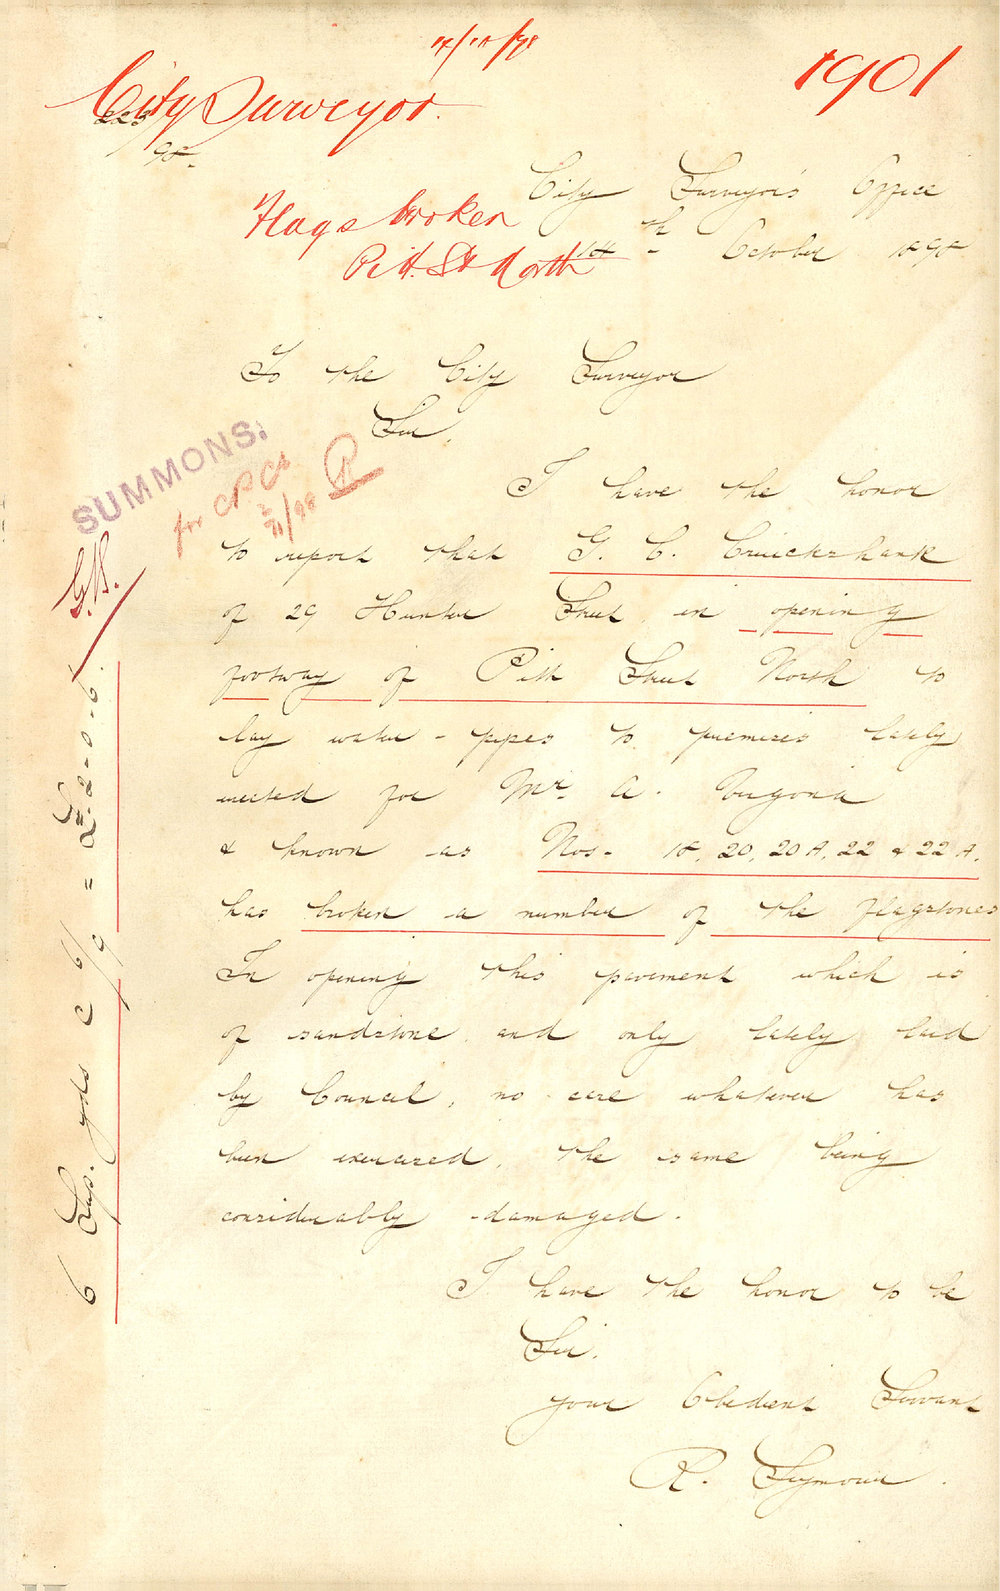 17/10/98
1901
City Surveyor.
223
98
City Surveyor's Office
Flags broken
Pitt. St North
14th October 1898
To the City Surveyor
Sir,
SUMMONS.
for CPC
I have the honor
to report that G. C. Cruickshank
of 29 Hunter Street, in opening
footway of Pitt Street North to
lay water-pipes to premises lately
erected for Mr. A.
& known as Nos- 18, 20, 20A, 22 & 22A.
has broken a number of the flagstones
In opening this pavement which is
of sandstone, and only lately laid
by Council, no care whatever has
been exercised, the same being
considerably damaged.
I have the honor to be
Sir.
your Obedient Servant
R. Seymour.
G.B.
6 Sup. yds @ 6/9 = £2-0-6.